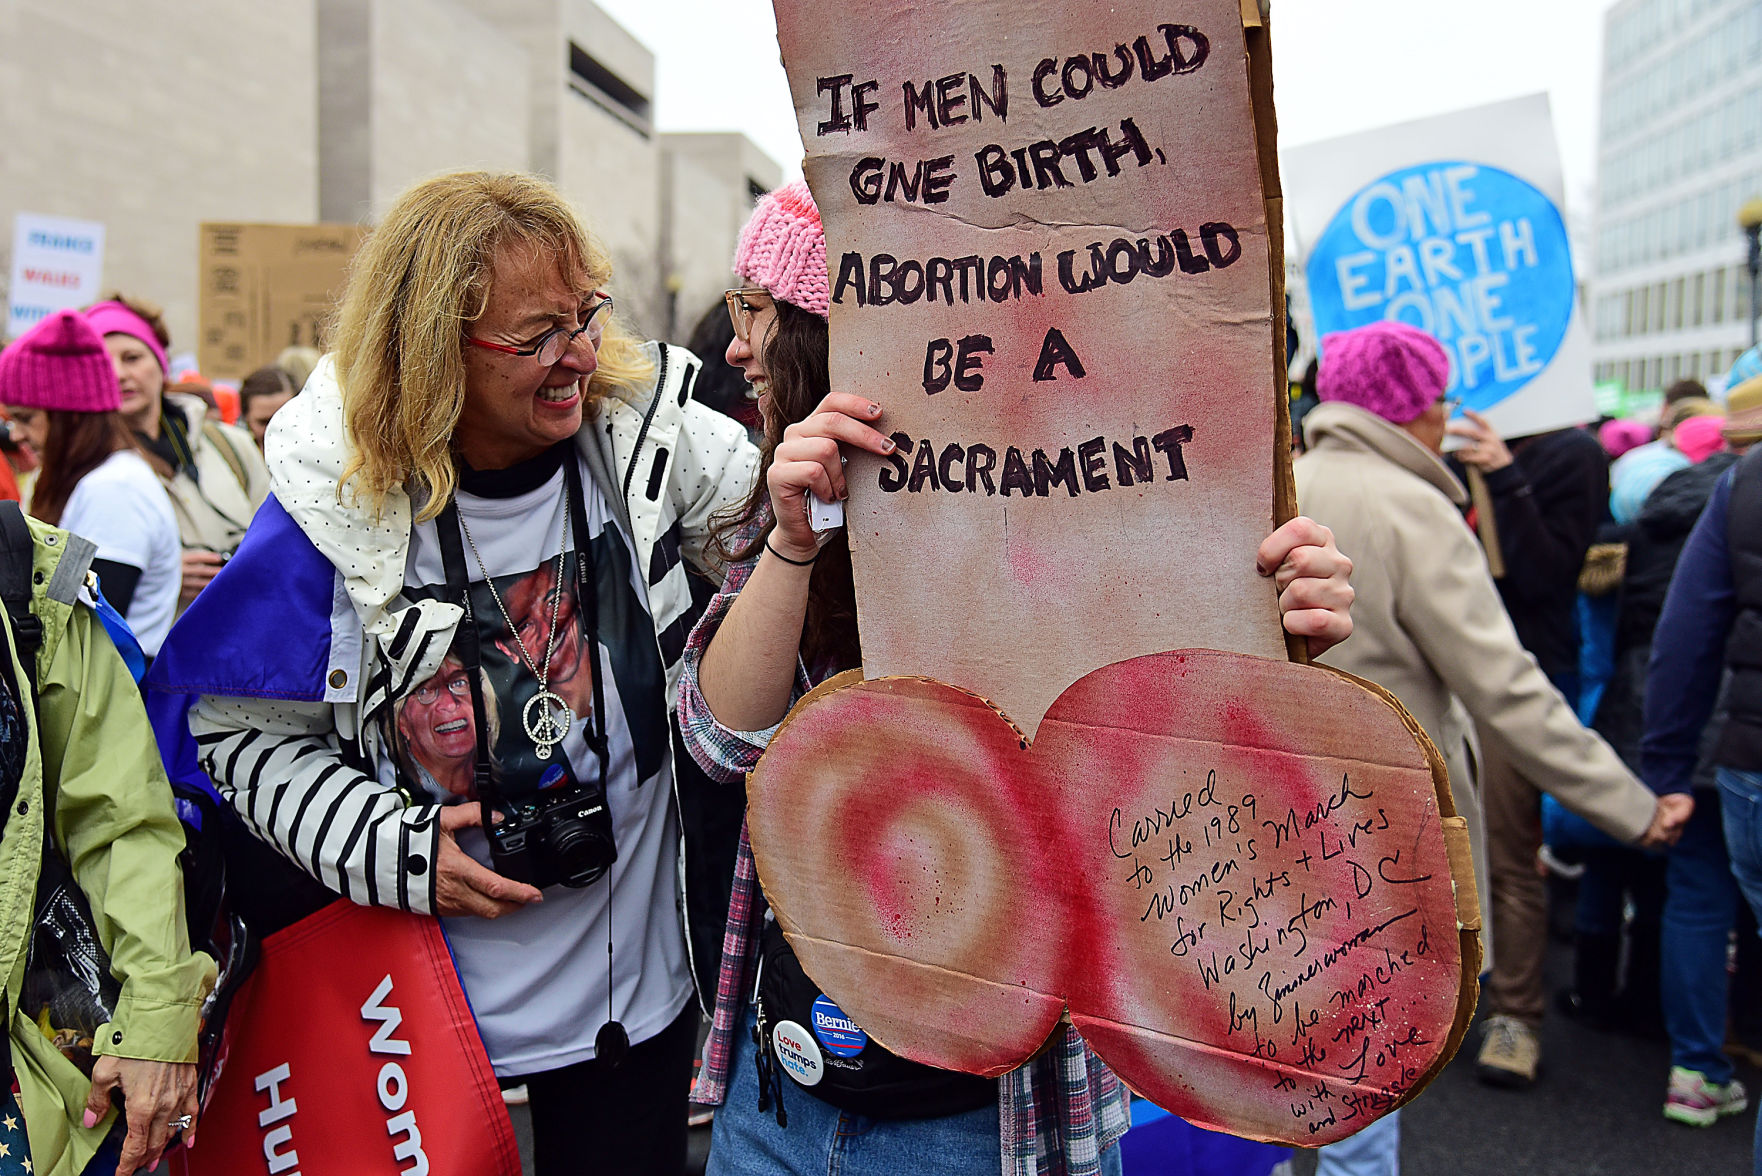 IF MEN COULD
GIVE BIRTH,
ABORTION WOULD
BE A
SACRAMENT
Carried
to the 1989
Women's March
for Rights + Lives
Washington, DC
by Zimmerwoman
to be marched
to the next...
with Love
and Struggle
ONE
EARTH
ONE
PEOPLE
FRANCE
WALKS
WITH
Canon
Canon
Bernie
2016
Love
trumps
hate.
Wom
Hu